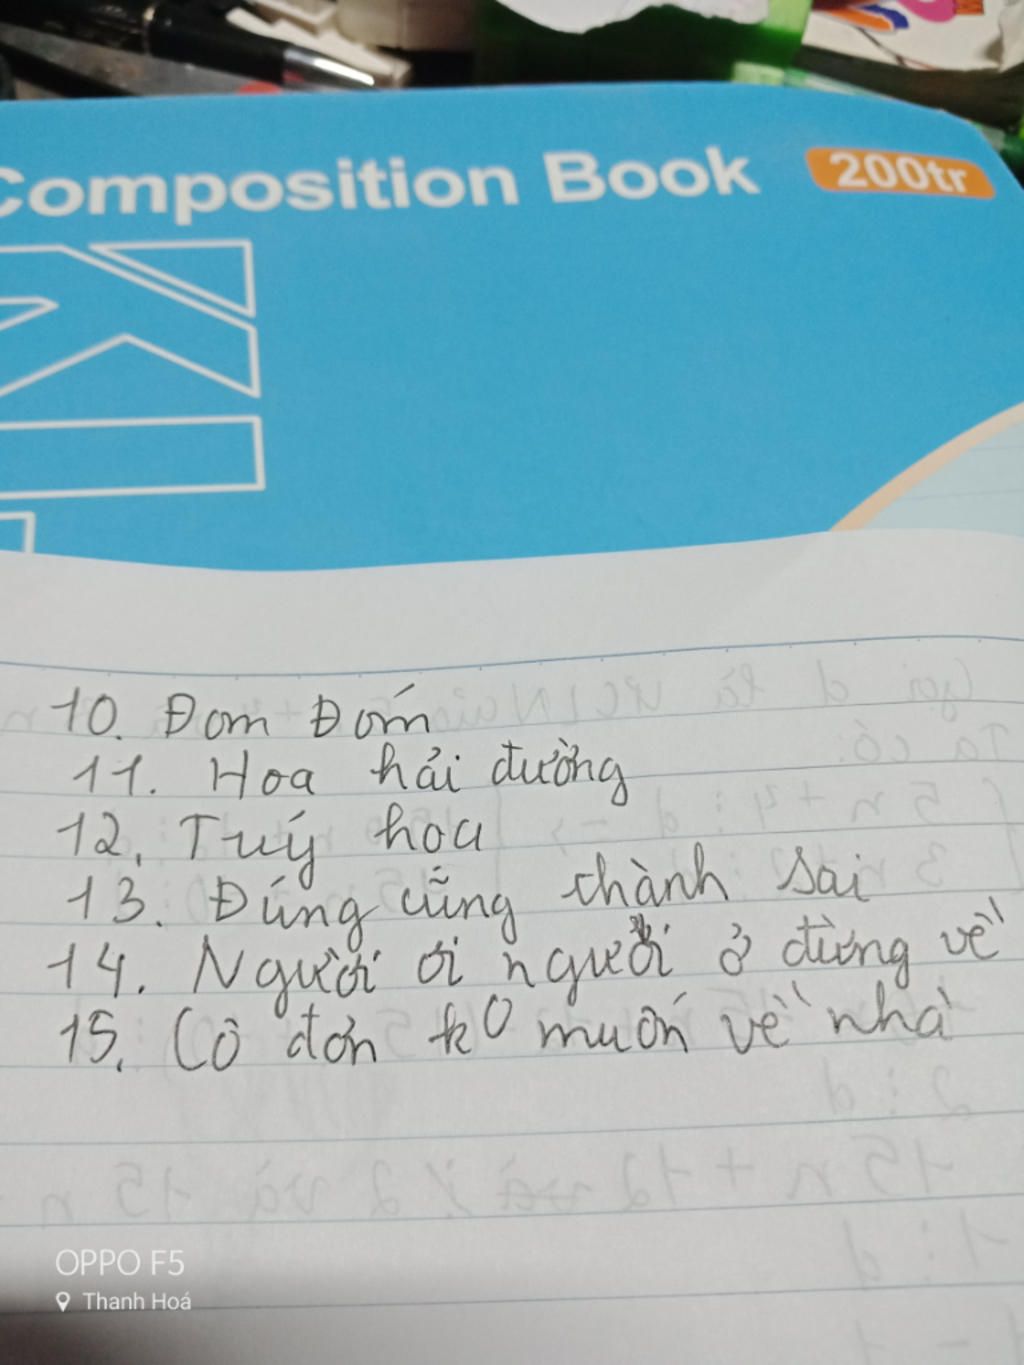 Composition Book 200tr
KI
10. Đom Đóm
11. Hoa hải đường
12. Tuý hoa
13. Đúng cũng thành sai
14. Người ơi người ở đừng về
15. Cô đơn k0 muốn về nhà
OPPO F5
Thanh Hoá